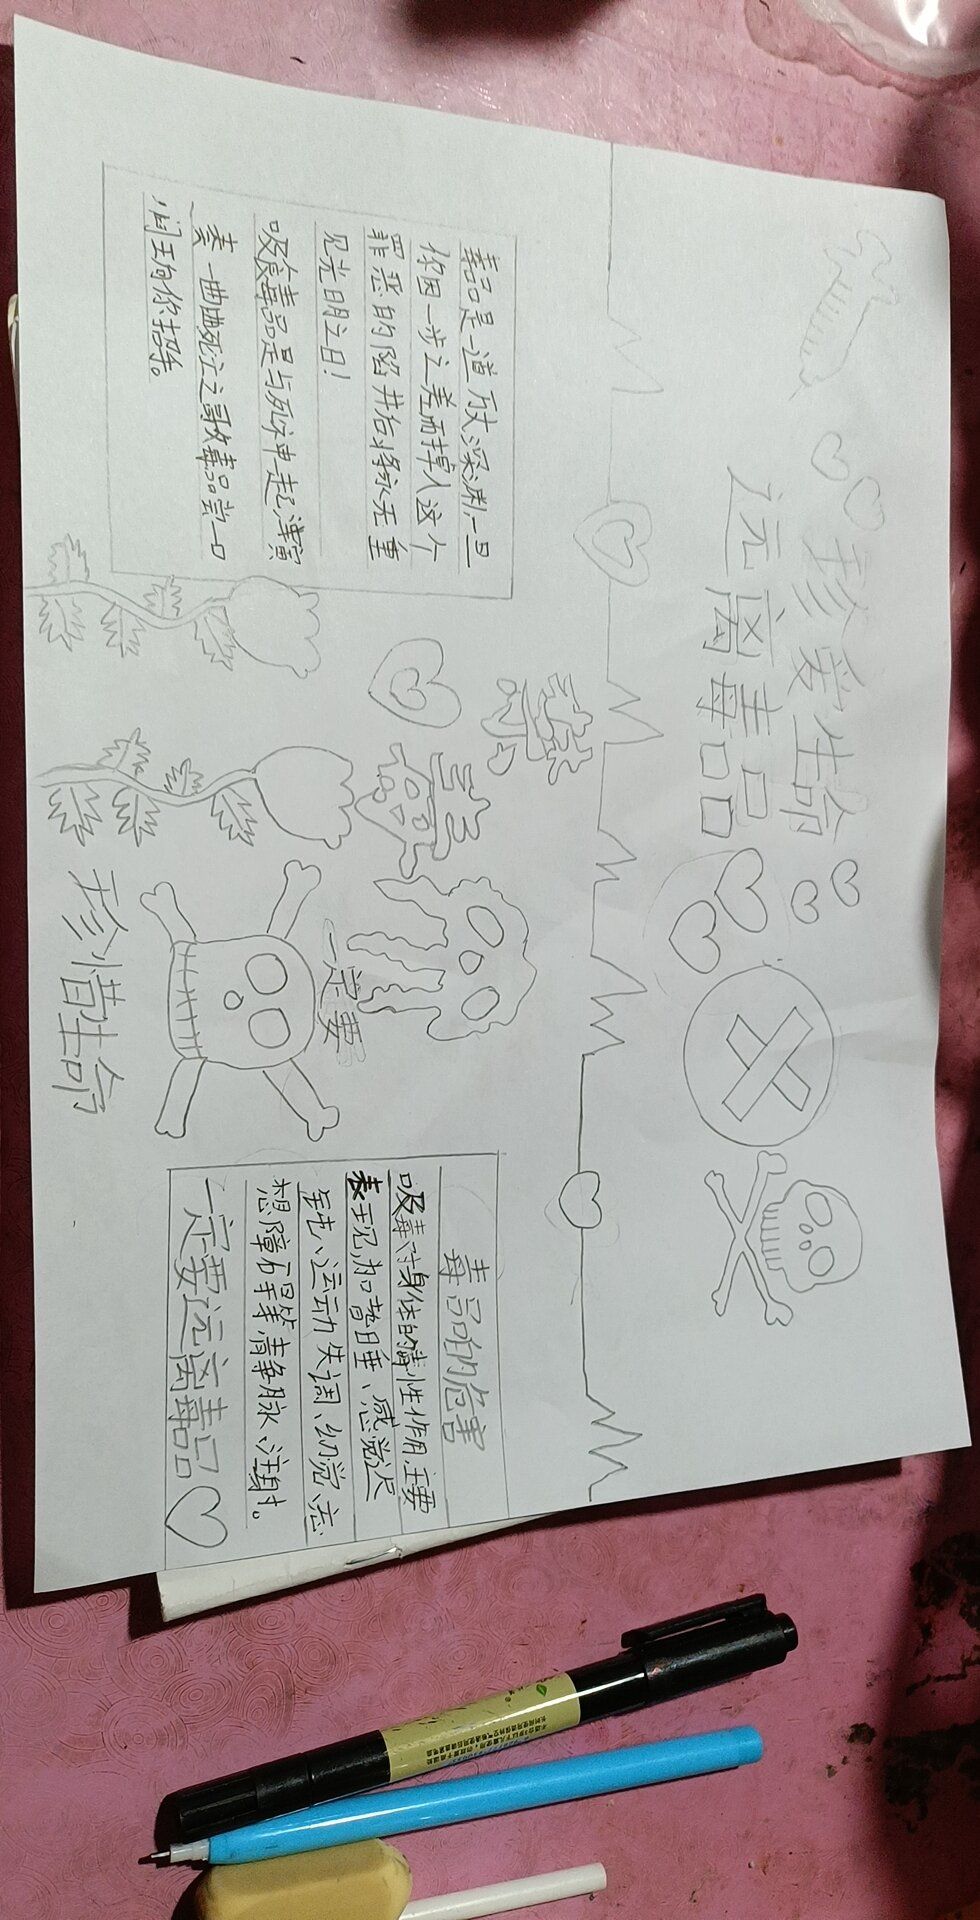 珍爱生命
远离毒品
毒品是一道万丈深渊,一旦
你因一步之差而掉入这个
罪恶的陷井后将永无重
见光明之日!
吸食毒品是与死神一起演
奏一曲死亡之歌毒品尝一口
阎王向你招手。
毒
一定要
珍惜生命
毒品的危害
吸毒对身体的毒性作用主要
表现,如嗜睡、感觉迟
钝、运动失调、幻觉、忘
想障碍等静脉注射。
一定要远离毒品